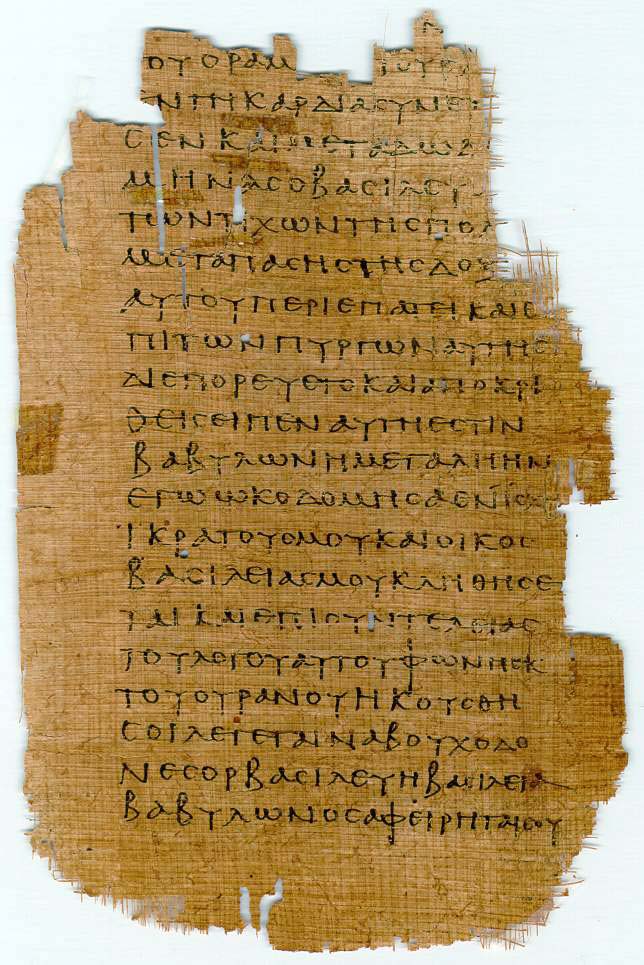 ΟΥΟΡΑΜ ΤΟΥϹ
ΕΝΤΗΚΑΡΔΙΑϹΥΝΕ
ϹΕΝΚΑΙΜΕΤΑΔΩΔ
ΜΗΝΑϹΟΒΑϹΙΛΕΥ
ΤΩΝΤΙΧΩΝΤΗϹΠΟΛ
ΜΕΤΑΠΑϹΗϹΤΗϹΔΟΞ
ΑΥΤΟΥΠΕΡΙΕΠΑΤΕΙΚΑΙΕ
ΠΙΤΩΝΠΥΡΓΩΝΑΥΤΗϹ
ΔΙΕΠΟΡΕΥΕΤΟΚΑΙΑΠΟΚΡΙ
ΘΕΙϹΕΙΠΕΝΑΥΤΗΕϹΤΙΝ
ΒΑΒΥΛΩΝΗΜΕΓΑΛΗΗΝ
ΕΓΩΩΚΟΔΟΜΗϹΑΕΝΙϹΧΥ
ΙΚΡΑΤΟΥϹΜΟΥΚΑΙΟΙΚΟϹ
ΒΑϹΙΛΕΙΑϹΜΟΥΚΛΗΘΗϹΕ
ΤΑΙΚΑΙΕΠΙϹΥΝΤΕΛΕΙΑϹ
ΤΟΥΛΟΓΟΥΑΥΤΟΥΦΩΝΗΕΚ
ΤΟΥΟΥΡΑΝΟΥΗΚΟΥϹΘΗ
ϹΟΙΛΕΓΕΤΑΙΝΑΒΟΥΧΟΔΟ
ΝΕϹΟΡΒΑϹΙΛΕΥΗΒΑϹΙΛΕΙΑ
ΒΑΒΥΛΩΝΟϹΑΦΕΙΡΗΤΑΙϹΟΥ